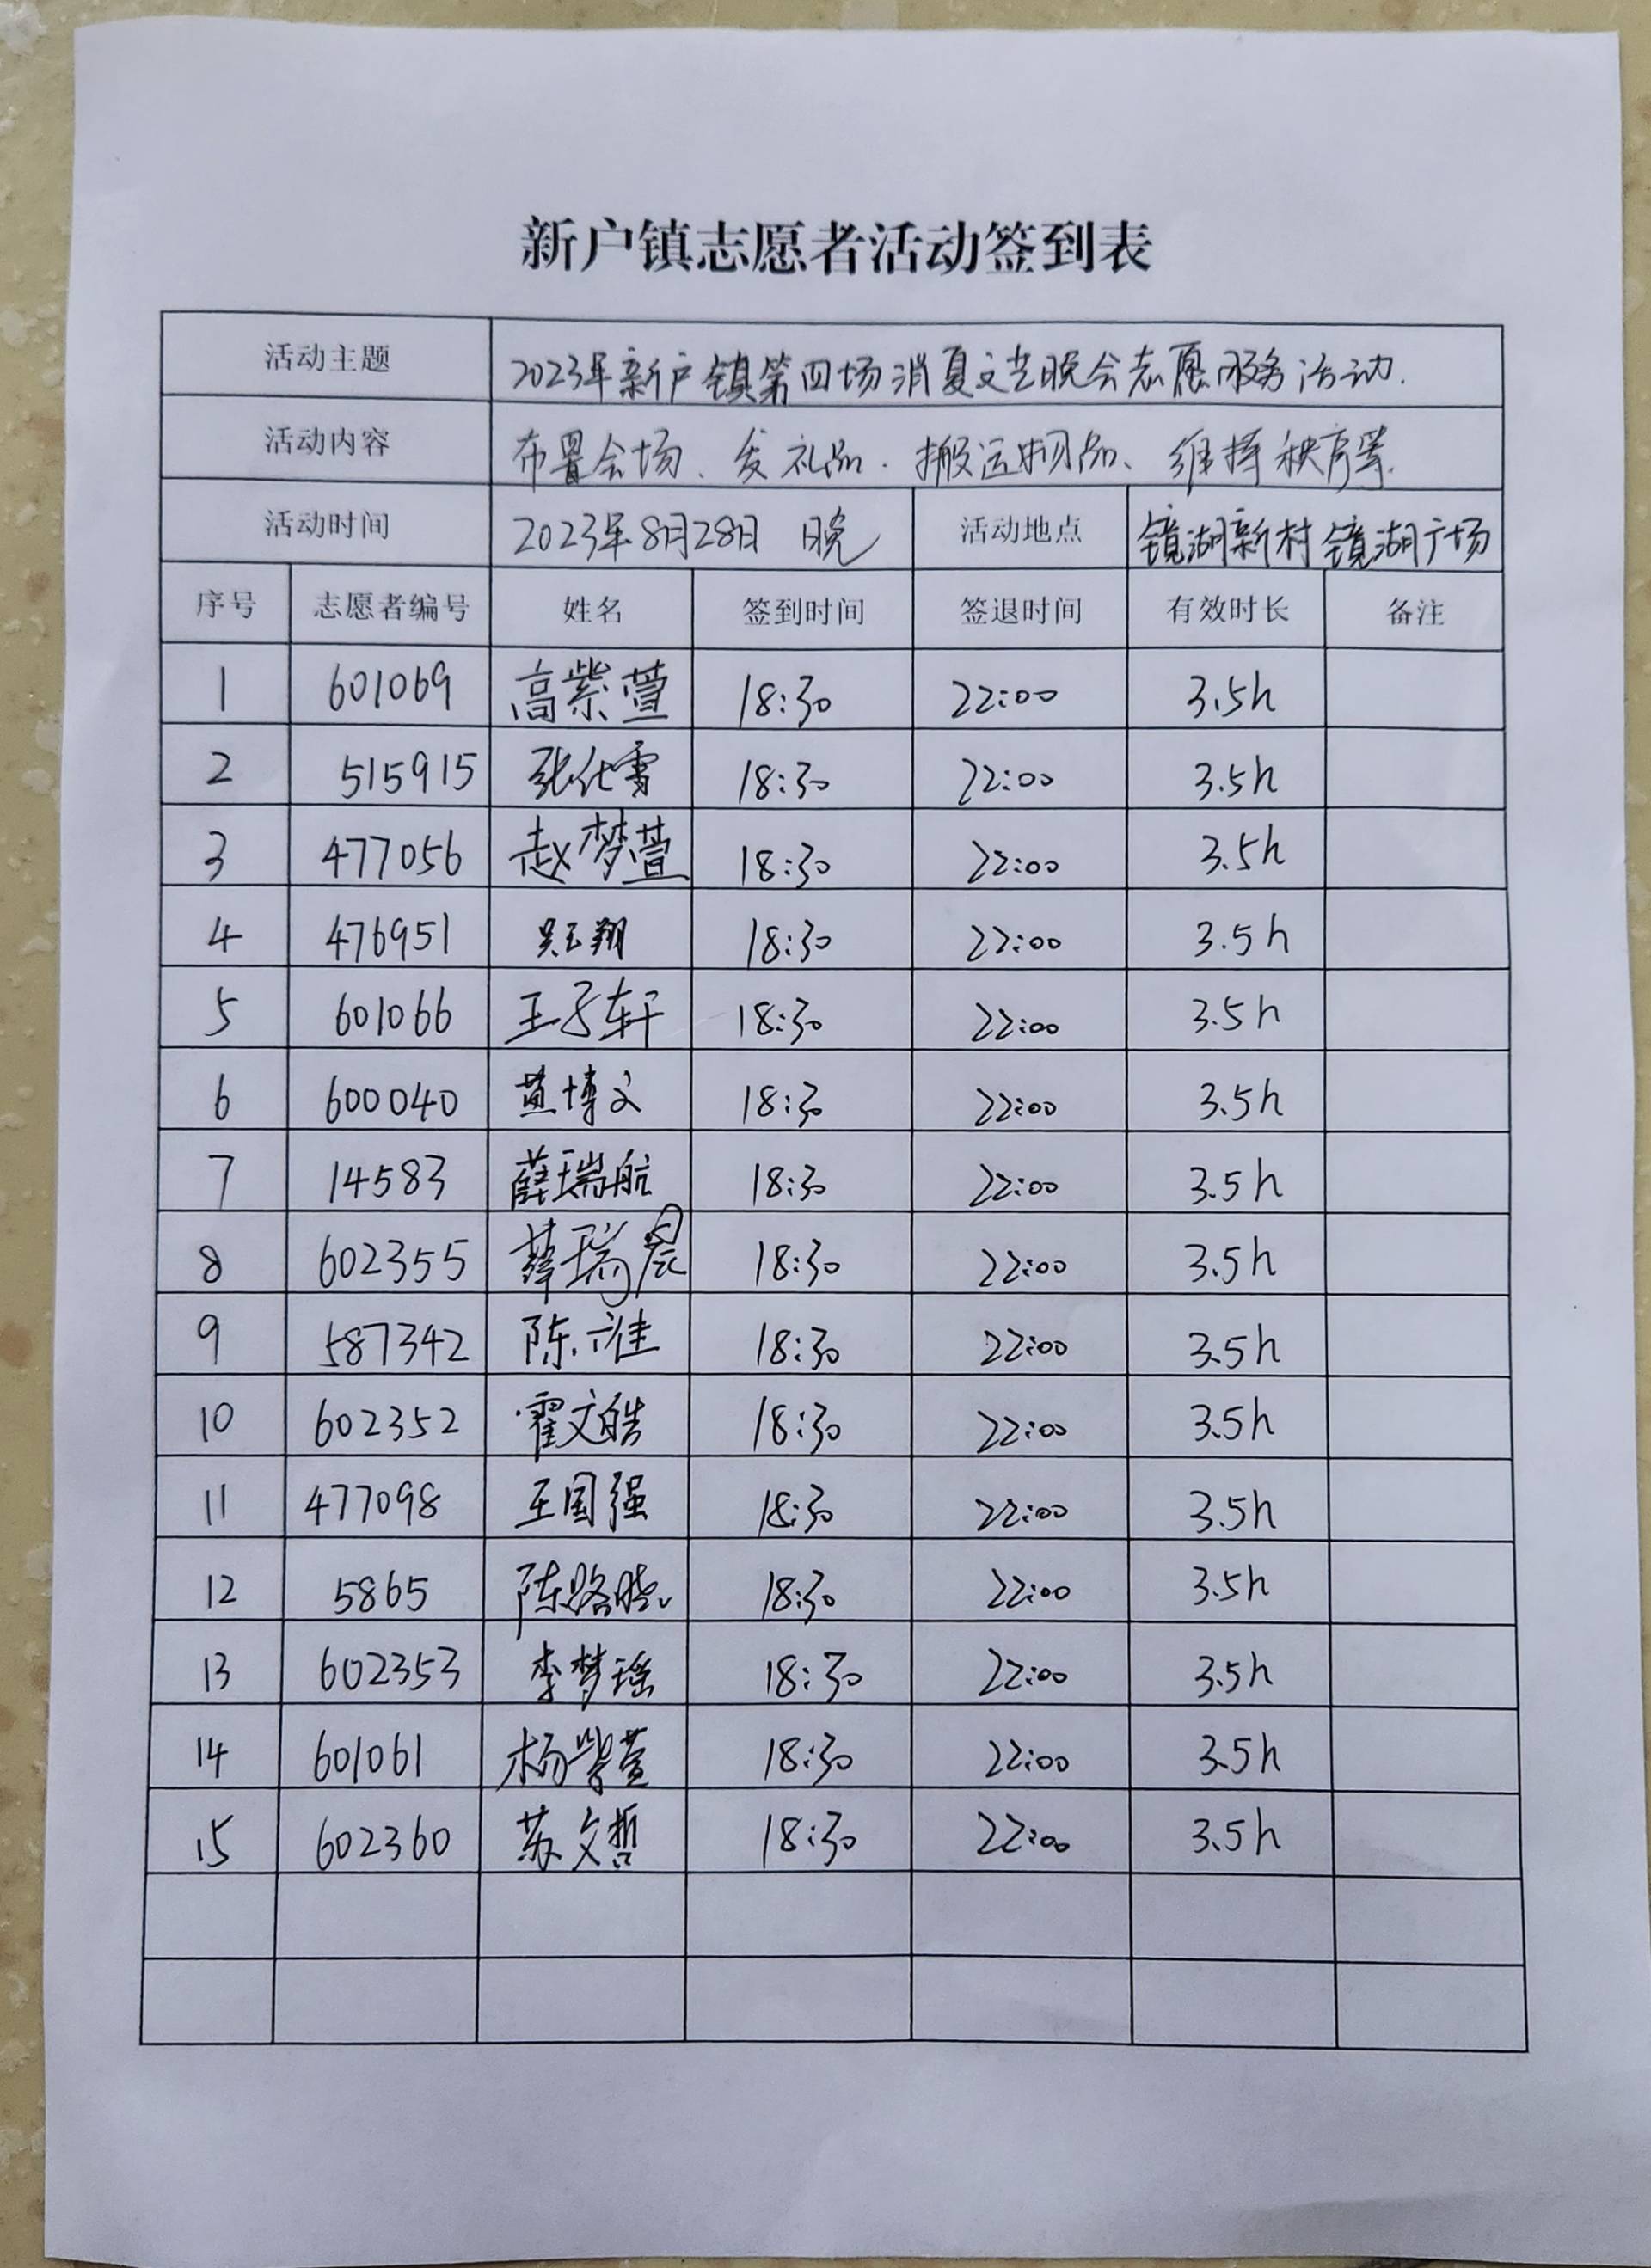 新户镇志愿者活动签到表
活动主题 2023年新户镇第四场消夏文艺晚会志愿服务活动.
活动内容 布置会场、发礼品、搬运物品、维持秩序等.
活动时间 2023年8月28日 晚 活动地点 镜湖新村 镜湖广场
序号 志愿者编号 姓名 签到时间 签退时间 有效时长 备注
1 601069 高紫萱 18:30 22:00 3.5h
2 515915 张化雪 18:30 22:00 3.5h
3 477056 赵梦萱 18:30 22:00 3.5h
4 476951 吴玉翔 18:30 22:00 3.5h
5 601066 王子轩 18:30 22:00 3.5h
6 600040 黄博文 18:30 22:00 3.5h
7 14583 薛瑞航 18:30 22:00 3.5h
8 602355 薛瑞晨 18:30 22:00 3.5h
9 587342 陈 18:30 22:00 3.5h
10 602352 霍文皓 18:30 22:00 3.5h
11 477098 王国强 18:30 22:00 3.5h
12 5865 陈路晓 18:30 22:00 3.5h
13 602353 李梦瑶 18:30 22:00 3.5h
14 601061 杨紫萱 18:30 22:00 3.5h
15 602360 苏文哲 18:30 22:00 3.5h